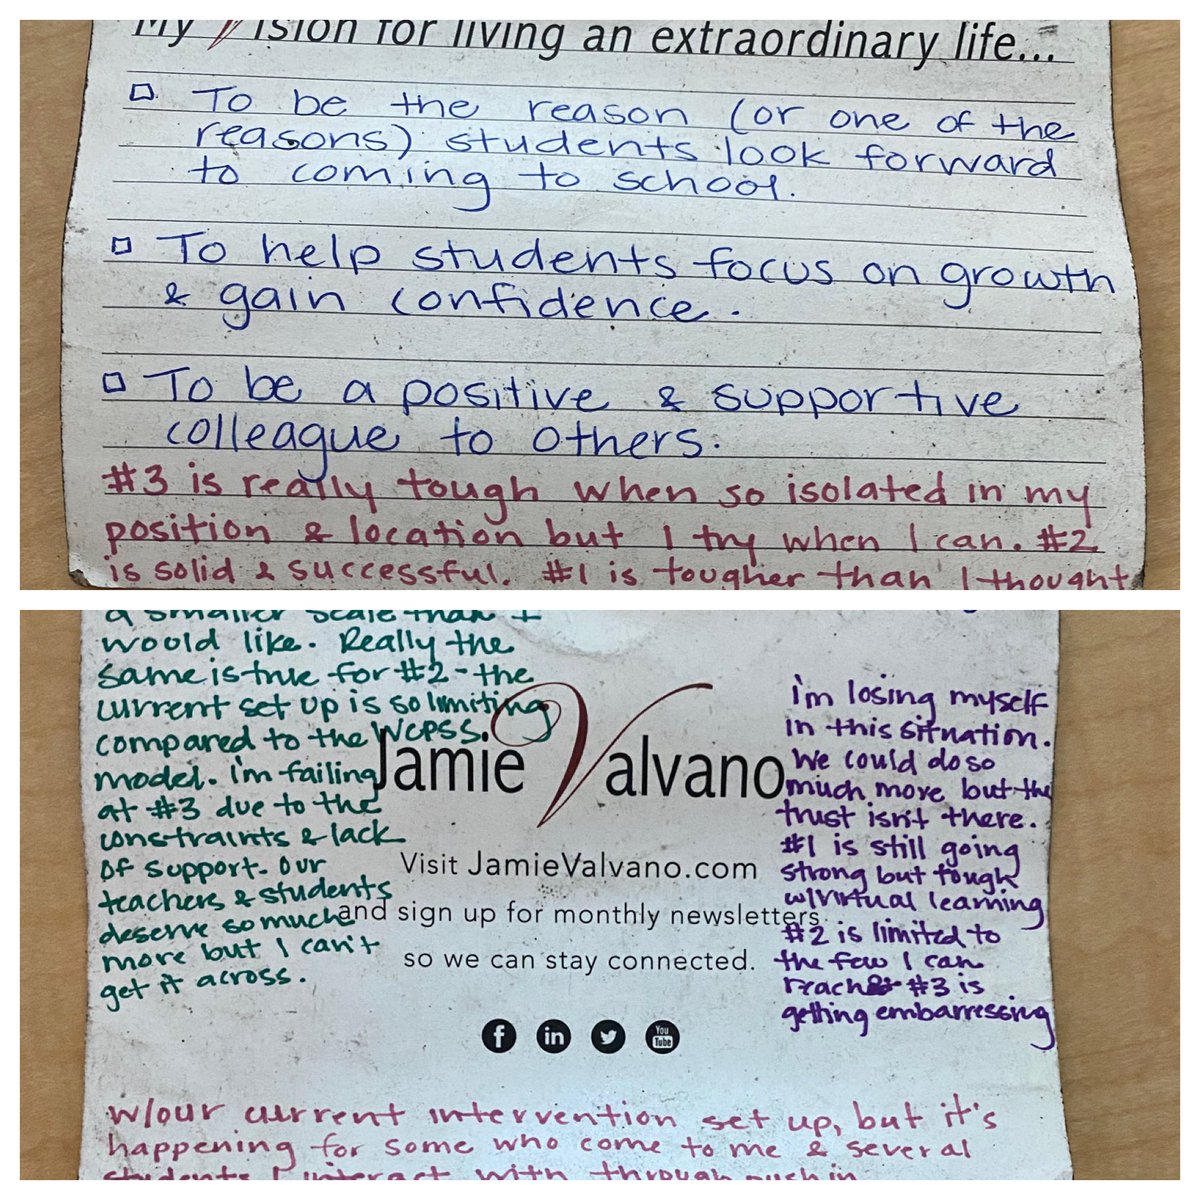 My Vision for living an extraordinary life...
To be the reason (or one of the
reasons) students look forward
to coming to school.
To help students focus on growth
& gain confidence.
To be a positive & supportive
colleague to others.
#3 is really tough when so isolated in my
position & location but I try when I can. #2
is solid & successful. #1 is tougher than I thought
a smaller scale than I
would like. Really the
same is true for #2 - the
current set up is so limiting
compared to the WCPSS
model. i'm failing
at #3 due to the
constraints & lack
of support. Our
teachers & students
deserve so much
more but I can't
get it across.
Jamie Valvano
Visit JamieValvano.com
and sign up for monthly newsletters
so we can stay connected.
You
Tube
i'm losing myself
in this situation.
We could do so
much more but the
trust isn't there.
#1 is still going
strong but tough
w/virtual learning
#2 is limited to
the few I can
reach & #3 is
getting embarressing
w/our current intervention set up, but it's
happening for some who come to me & several
students I interact with through push in